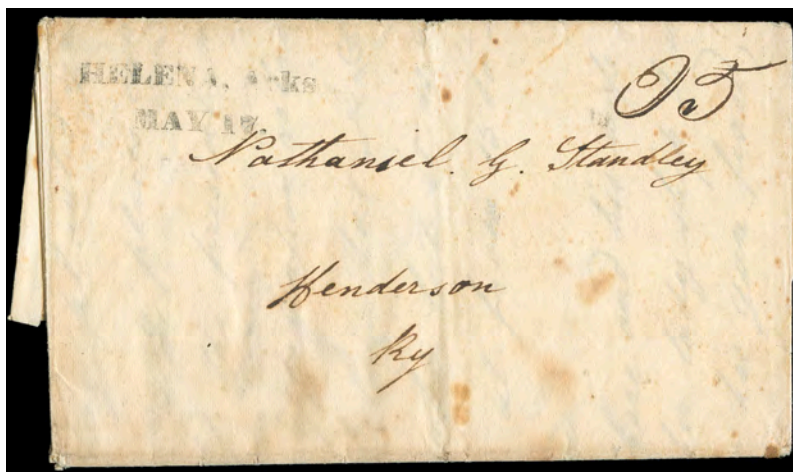 HELENA, Arks
MAY 17
25
Nathaniel. G. Standley
Henderson
Ky